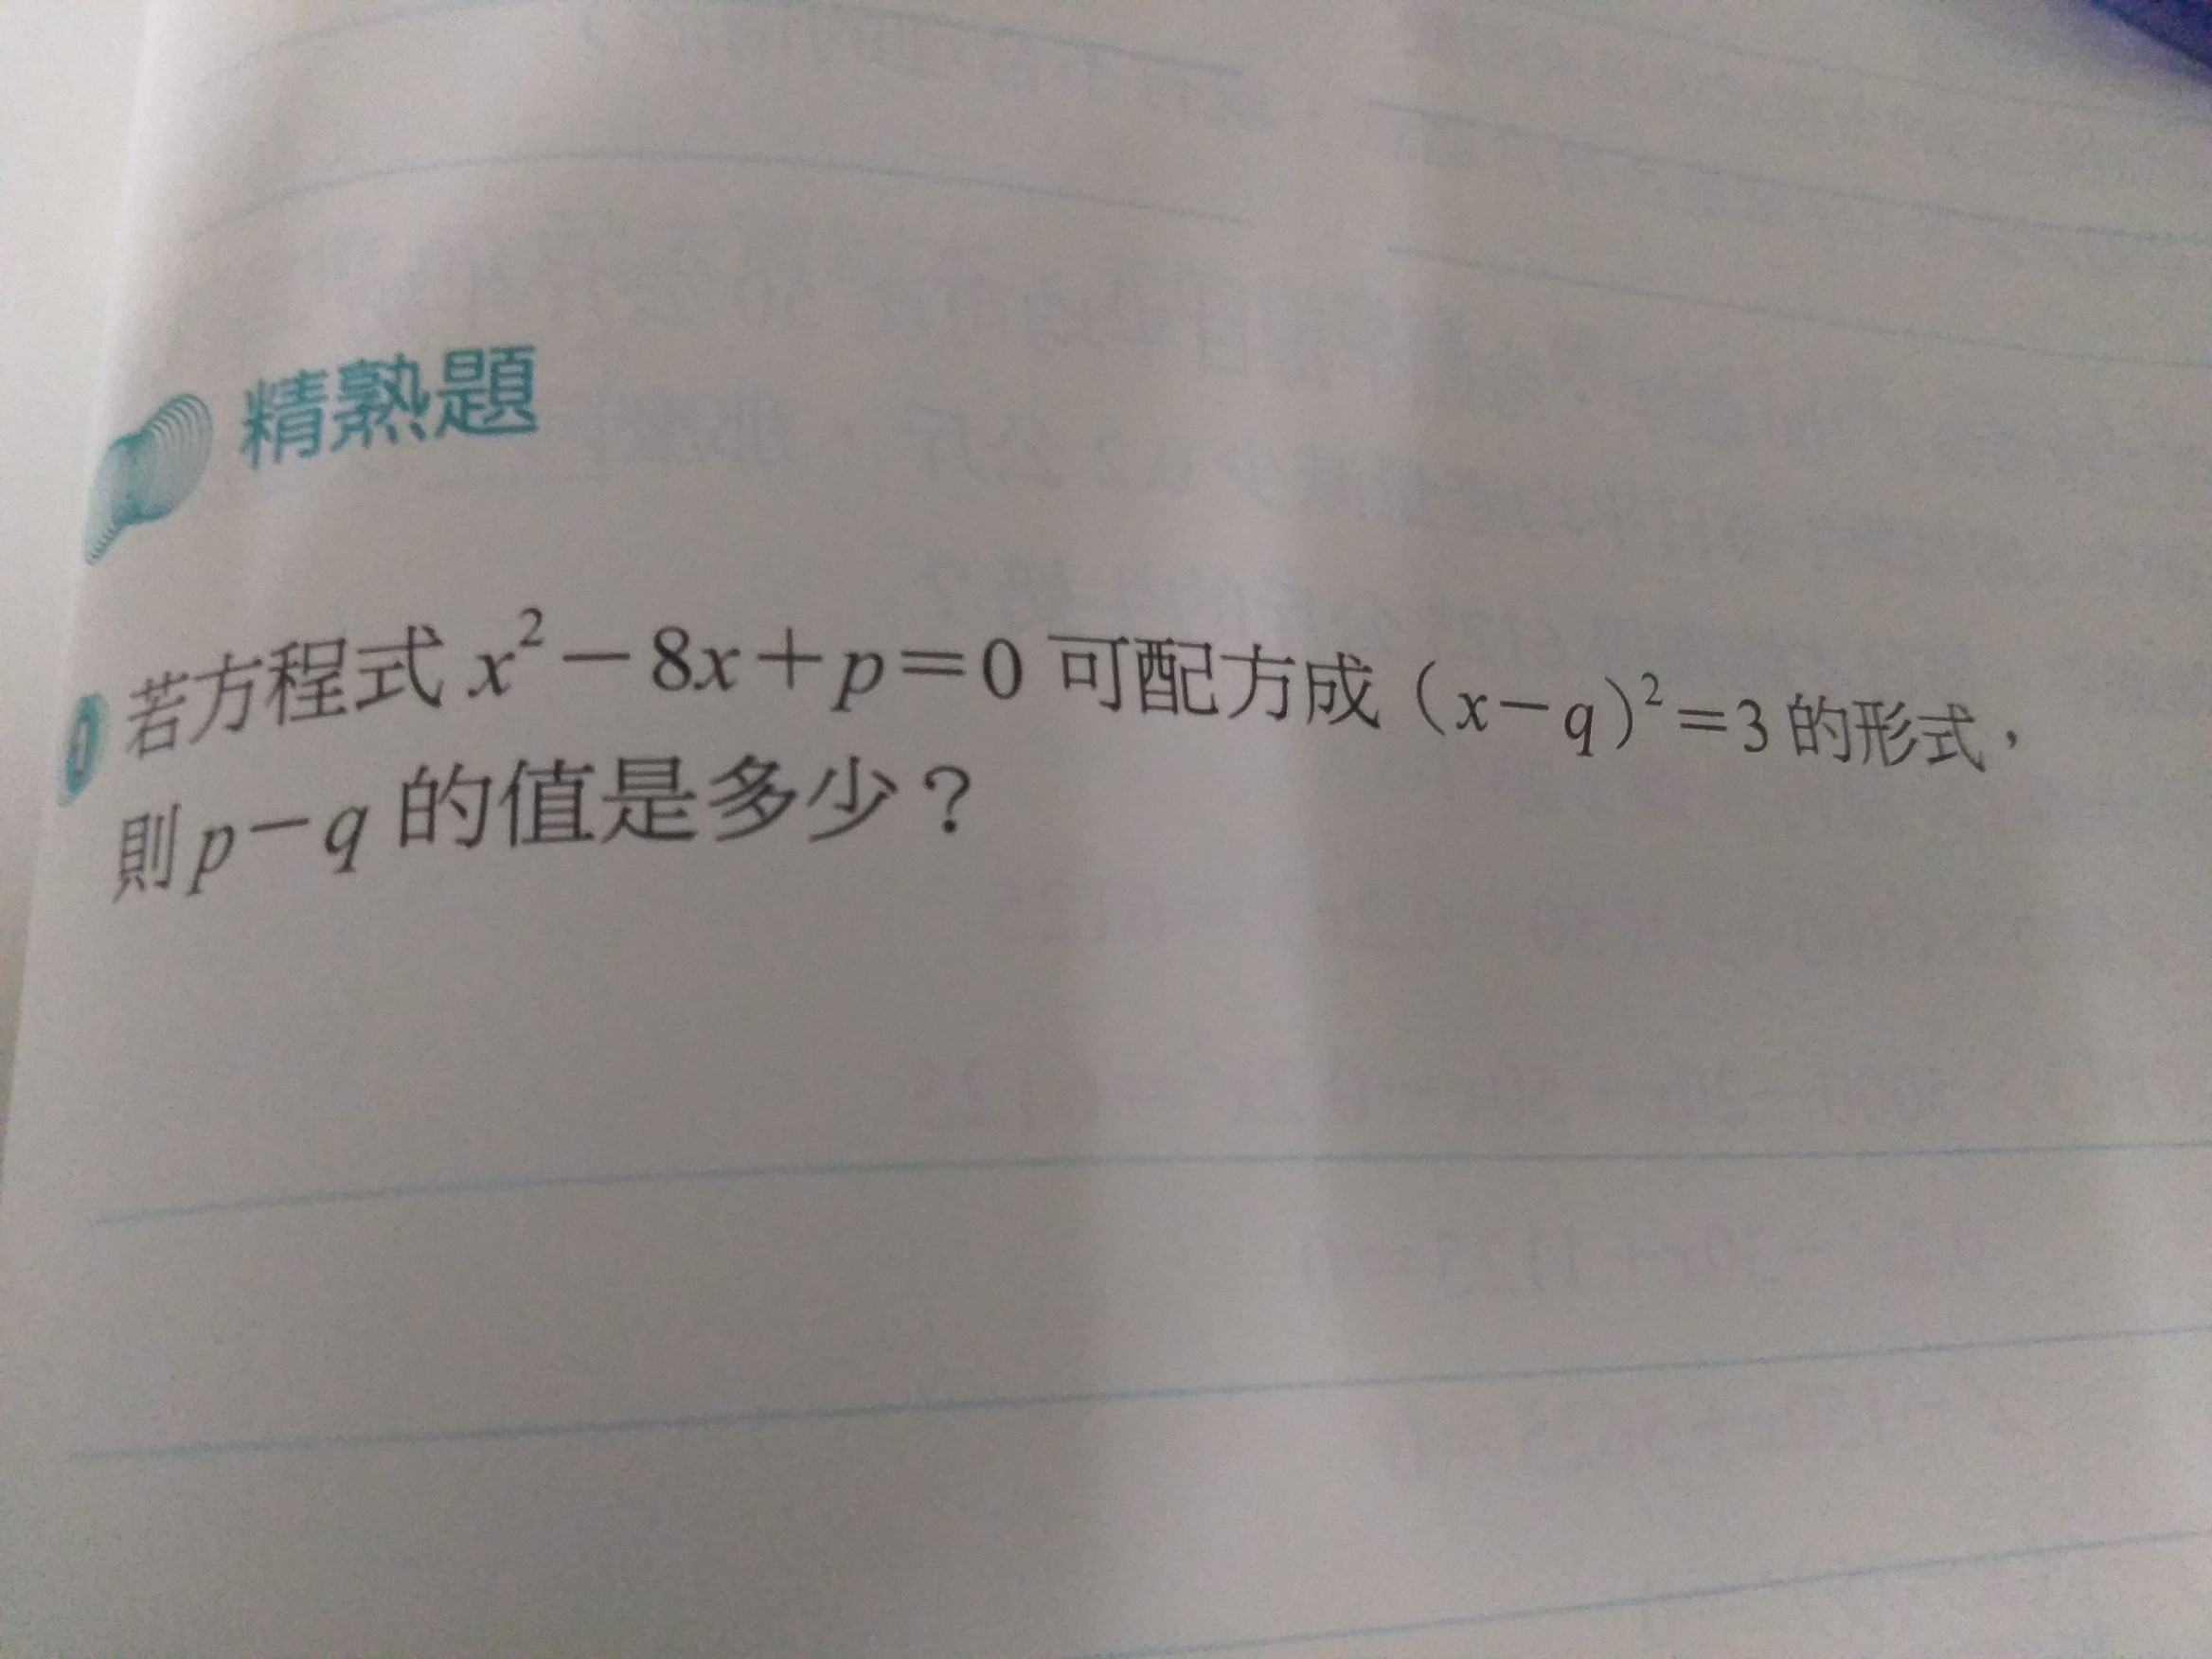 精熟題
1 若方程式 x²－8x＋p＝0 可配方成（x－q）²＝3 的形式，
則 p－q 的值是多少？